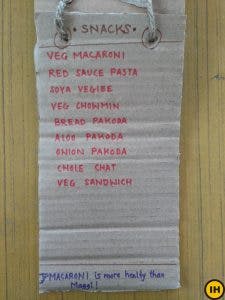 • SNACKS •
VEG MACARONI
RED SAUCE PASTA
SOYA VEGIBE
VEG CHOWMIN
BREAD PAKODA
ALOO PAKODA
ONION PAKODA
CHOLE CHAT
VEG SANDWICH
MACARONI is more healty than
Maggi!
IH